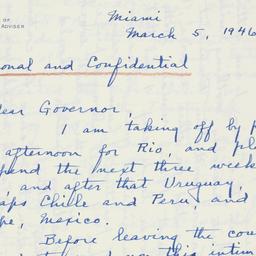 OF
ADVISER
Miami
March 5, 1946
onal and Confidential
ear Governor,
I am taking off by p
afternoon for Rio, and pl
pend the next three week
, and after that Uruguay,
aps Chille and Peru, and
pe, Mexico.
Before leaving the cou
this intim